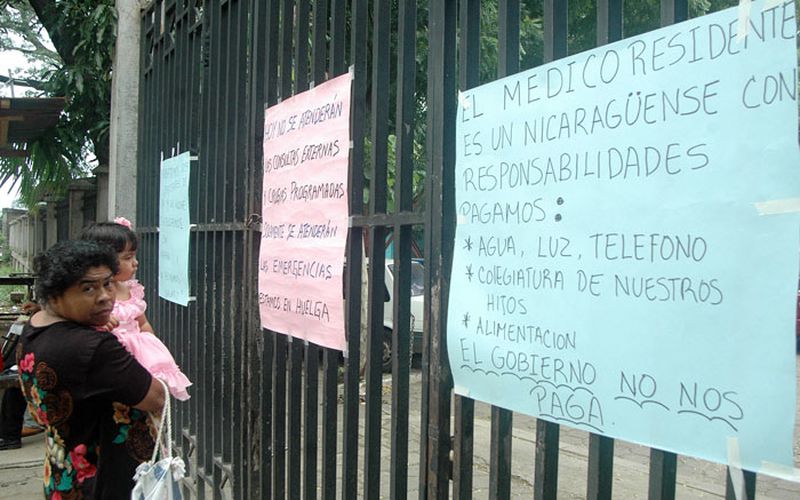 HOY NO SE ATENDERÁN
LAS CONSULTAS EXTERNAS
Y CIRUGIAS PROGRAMADAS
SOLAMENTE SE ATENDERÁN
LAS EMERGENCIAS
ESTAMOS EN HUELGA
EL MEDICO RESIDENTE
ES UN NICARAGÜENSE CON
RESPONSABILIDADES
PAGAMOS:
* AGUA, LUZ, TELEFONO
* COLEGIATURA DE NUESTROS
HIJOS
* ALIMENTACION
EL GOBIERNO NO NOS
PAGA.